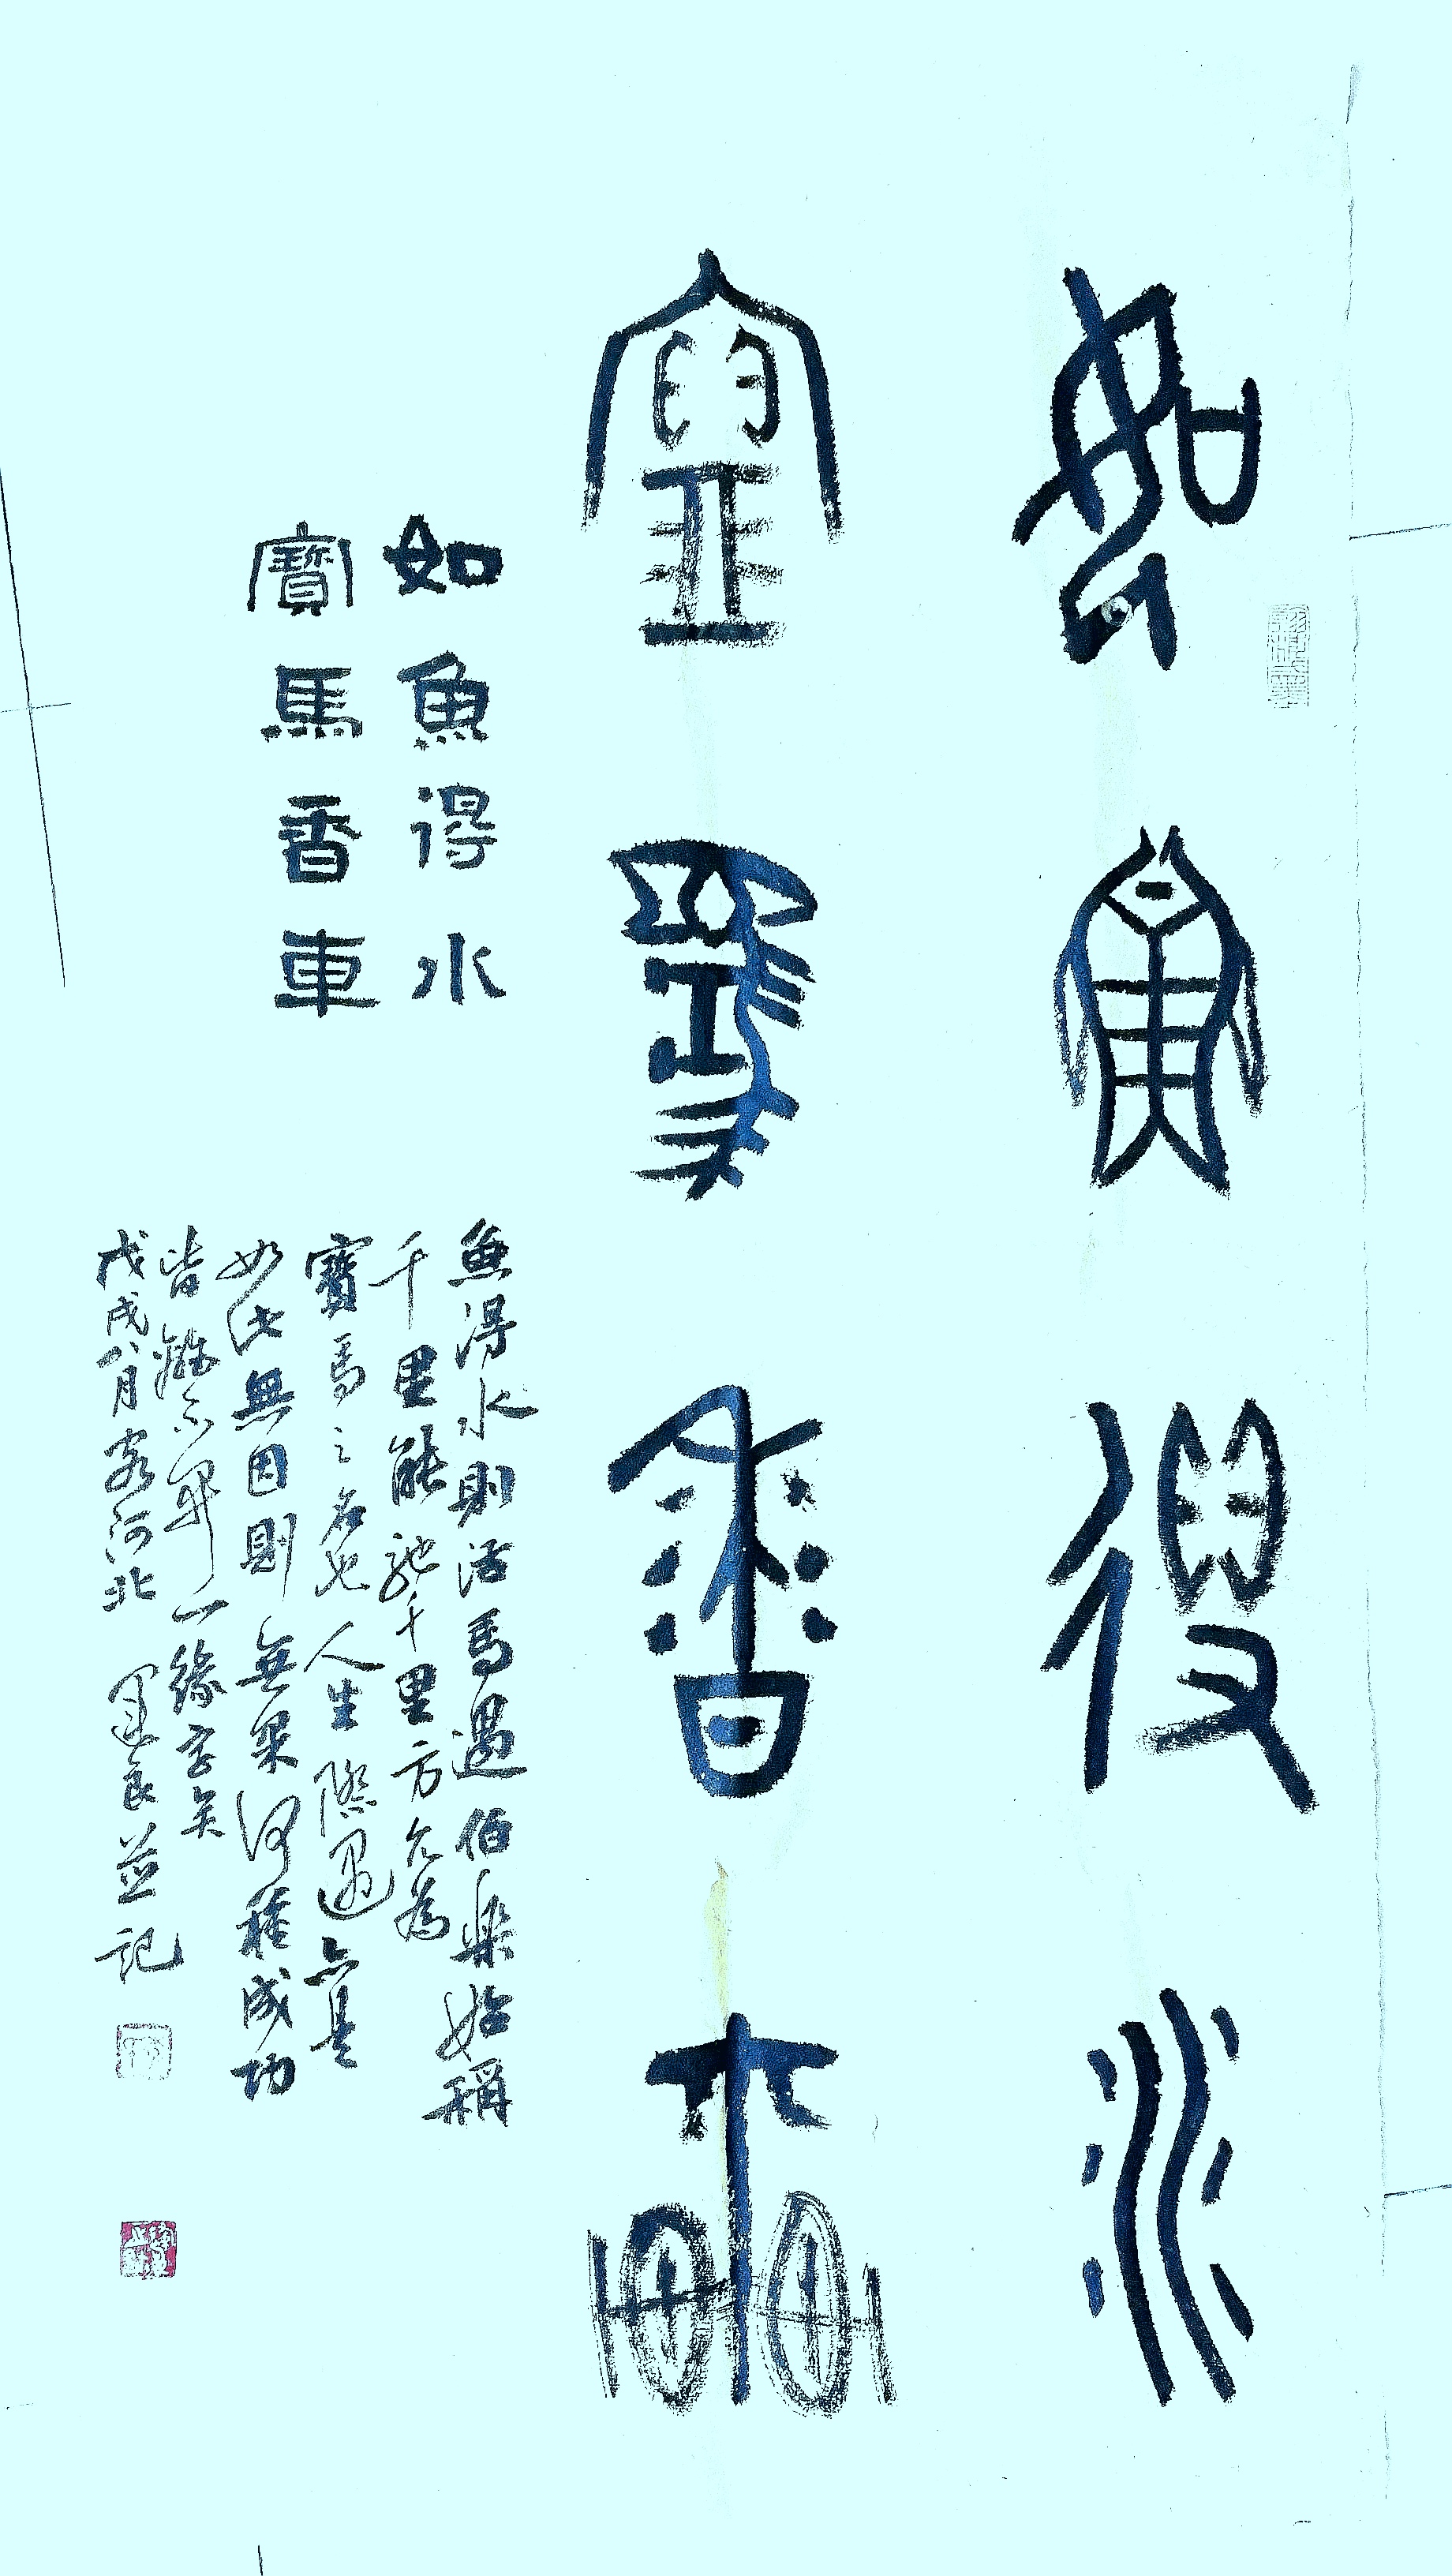 如魚得水
寶馬香車
如魚得水
寶馬香車
魚得水則活馬遇伯樂始稱
千里能馳千里方允為
寶馬之名也人生際遇亦是
如此無因則無果何種成功
皆離不開一緣字矣
戊戌八月客河北 運良並記